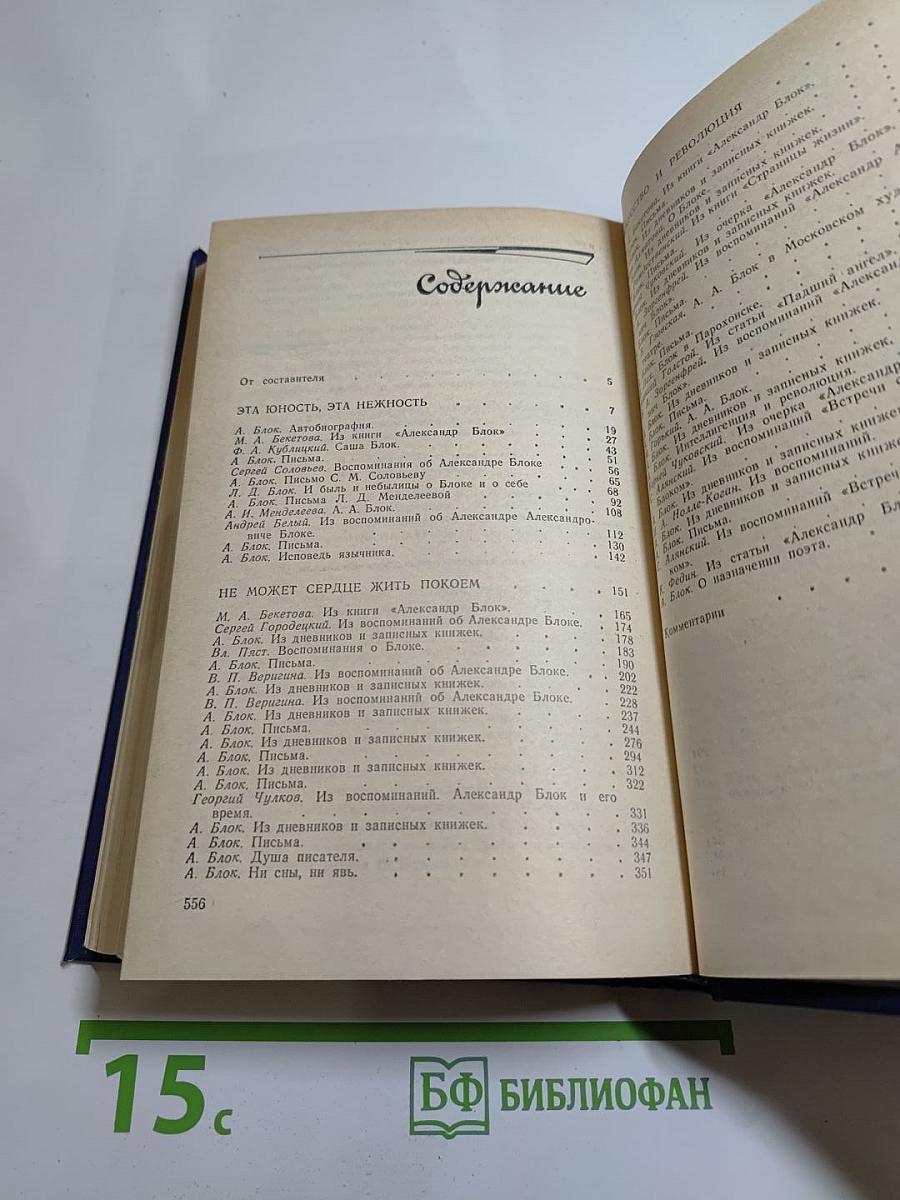 Содержание
От составителя . . . . . . . . 5
ЭТА ЮНОСТЬ, ЭТА НЕЖНОСТЬ . . . . . . 7
А. Блок. Автобиография. . . . . . . 19
М. А. Бекетова. Из книги «Александр Блок» . . . 27
Ф. А. Кублицкий. Саша Блок. . . . . . 43
А Блок. Письма. . . . . . . 51
Сергей Соловьев. Воспоминания об Александре Блоке . . 56
А. Блок. Письмо С. М. Соловьеву . . . . 65
Л. Д. Блок. И быль и небылицы о Блоке и о себе . . 68
А. Блок. Письма Л. Д. Менделеевой . . . . 92
А. И. Менделеева. А. А. Блок. . . . . 108
Андрей Белый. Из воспоминаний об Александре Александро-
виче Блоке. . . . . . . 112
А. Блок. Письма. . . . . . . 130
А. Блок. Исповедь язычника. . . . . . 142
НЕ МОЖЕТ СЕРДЦЕ ЖИТЬ ПОКОЕМ . . . . 151
М. А. Бекетова. Из книги «Александр Блок». . . . 165
Сергей Городецкий. Из воспоминаний об Александре Блоке. . 174
А. Блок. Из дневников и записных книжек. . . . 178
Вл. Пяст. Воспоминания о Блоке. . . . . 183
А. Блок. Письма. . . . . . . 190
В. П. Веригина. Из воспоминаний об Александре Блоке. . . 202
А. Блок. Из дневников и записных книжек. . . . 222
В. П. Веригина. Из воспоминаний об Александре Блоке. . 228
А. Блок. Из дневников и записных книжек. . . . 237
А. Блок. Письма. . . . . . . 244
А. Блок. Из дневников и записных книжек. . . . 276
А. Блок. Письма. . . . . . . 294
А. Блок. Из дневников и записных книжек. . . . 312
А. Блок. Письма. . . . . . . 322
Георгий Чулков. Из воспоминаний. Александр Блок и его
время. . . . . . . . 331
А. Блок. Из дневников и записных книжек. . . . 336
А. Блок. Письма. . . . . . . 344
А. Блок. Душа писателя. . . . . . . 347
А. Блок. Ни сны, ни явь. . . . . . . 351
556
И РЕВОЛЮЦИЯ
Из книги «Александр Блок».
дневников и записных книжек.
О Блоке.
Из дневников и записных книжек.
Из книги «Страницы жизни».
Письма.
Чуковский. Из очерка «Александр Блок».
Из дневников и записных книжек.
Зоргенфрей. Из воспоминаний «Александр А
Блок».
Письма.
А. А. Блок в Московском худ
Письма.
Блок в Парохонске.
Толстой. Из статьи «Падший ангел».
А. Зоргенфрей. Из воспоминаний «Александ
вич Блок».
Блок. Из дневников и записных книжек.
Блок. Письма.
Горький. А. А. Блок.
Блок. Из дневников и записных книжек.
Блок. Интеллигенция и революция.
Чуковский. Из очерка «Александр
Алянский. Из воспоминаний «Встречи с
Блоком».
Блок. Из дневников и записных книжек
А. Нолле-Коган. Из воспоминаний.
Блок. Из дневников и записных книже
Блок. Письма.
Алянский. Из воспоминаний «Встреч
ком».
Федин. Из статьи «Александр Бл
Блок. О назначении поэта.
Комментарии
15 с
БФ БИБЛИОФАН